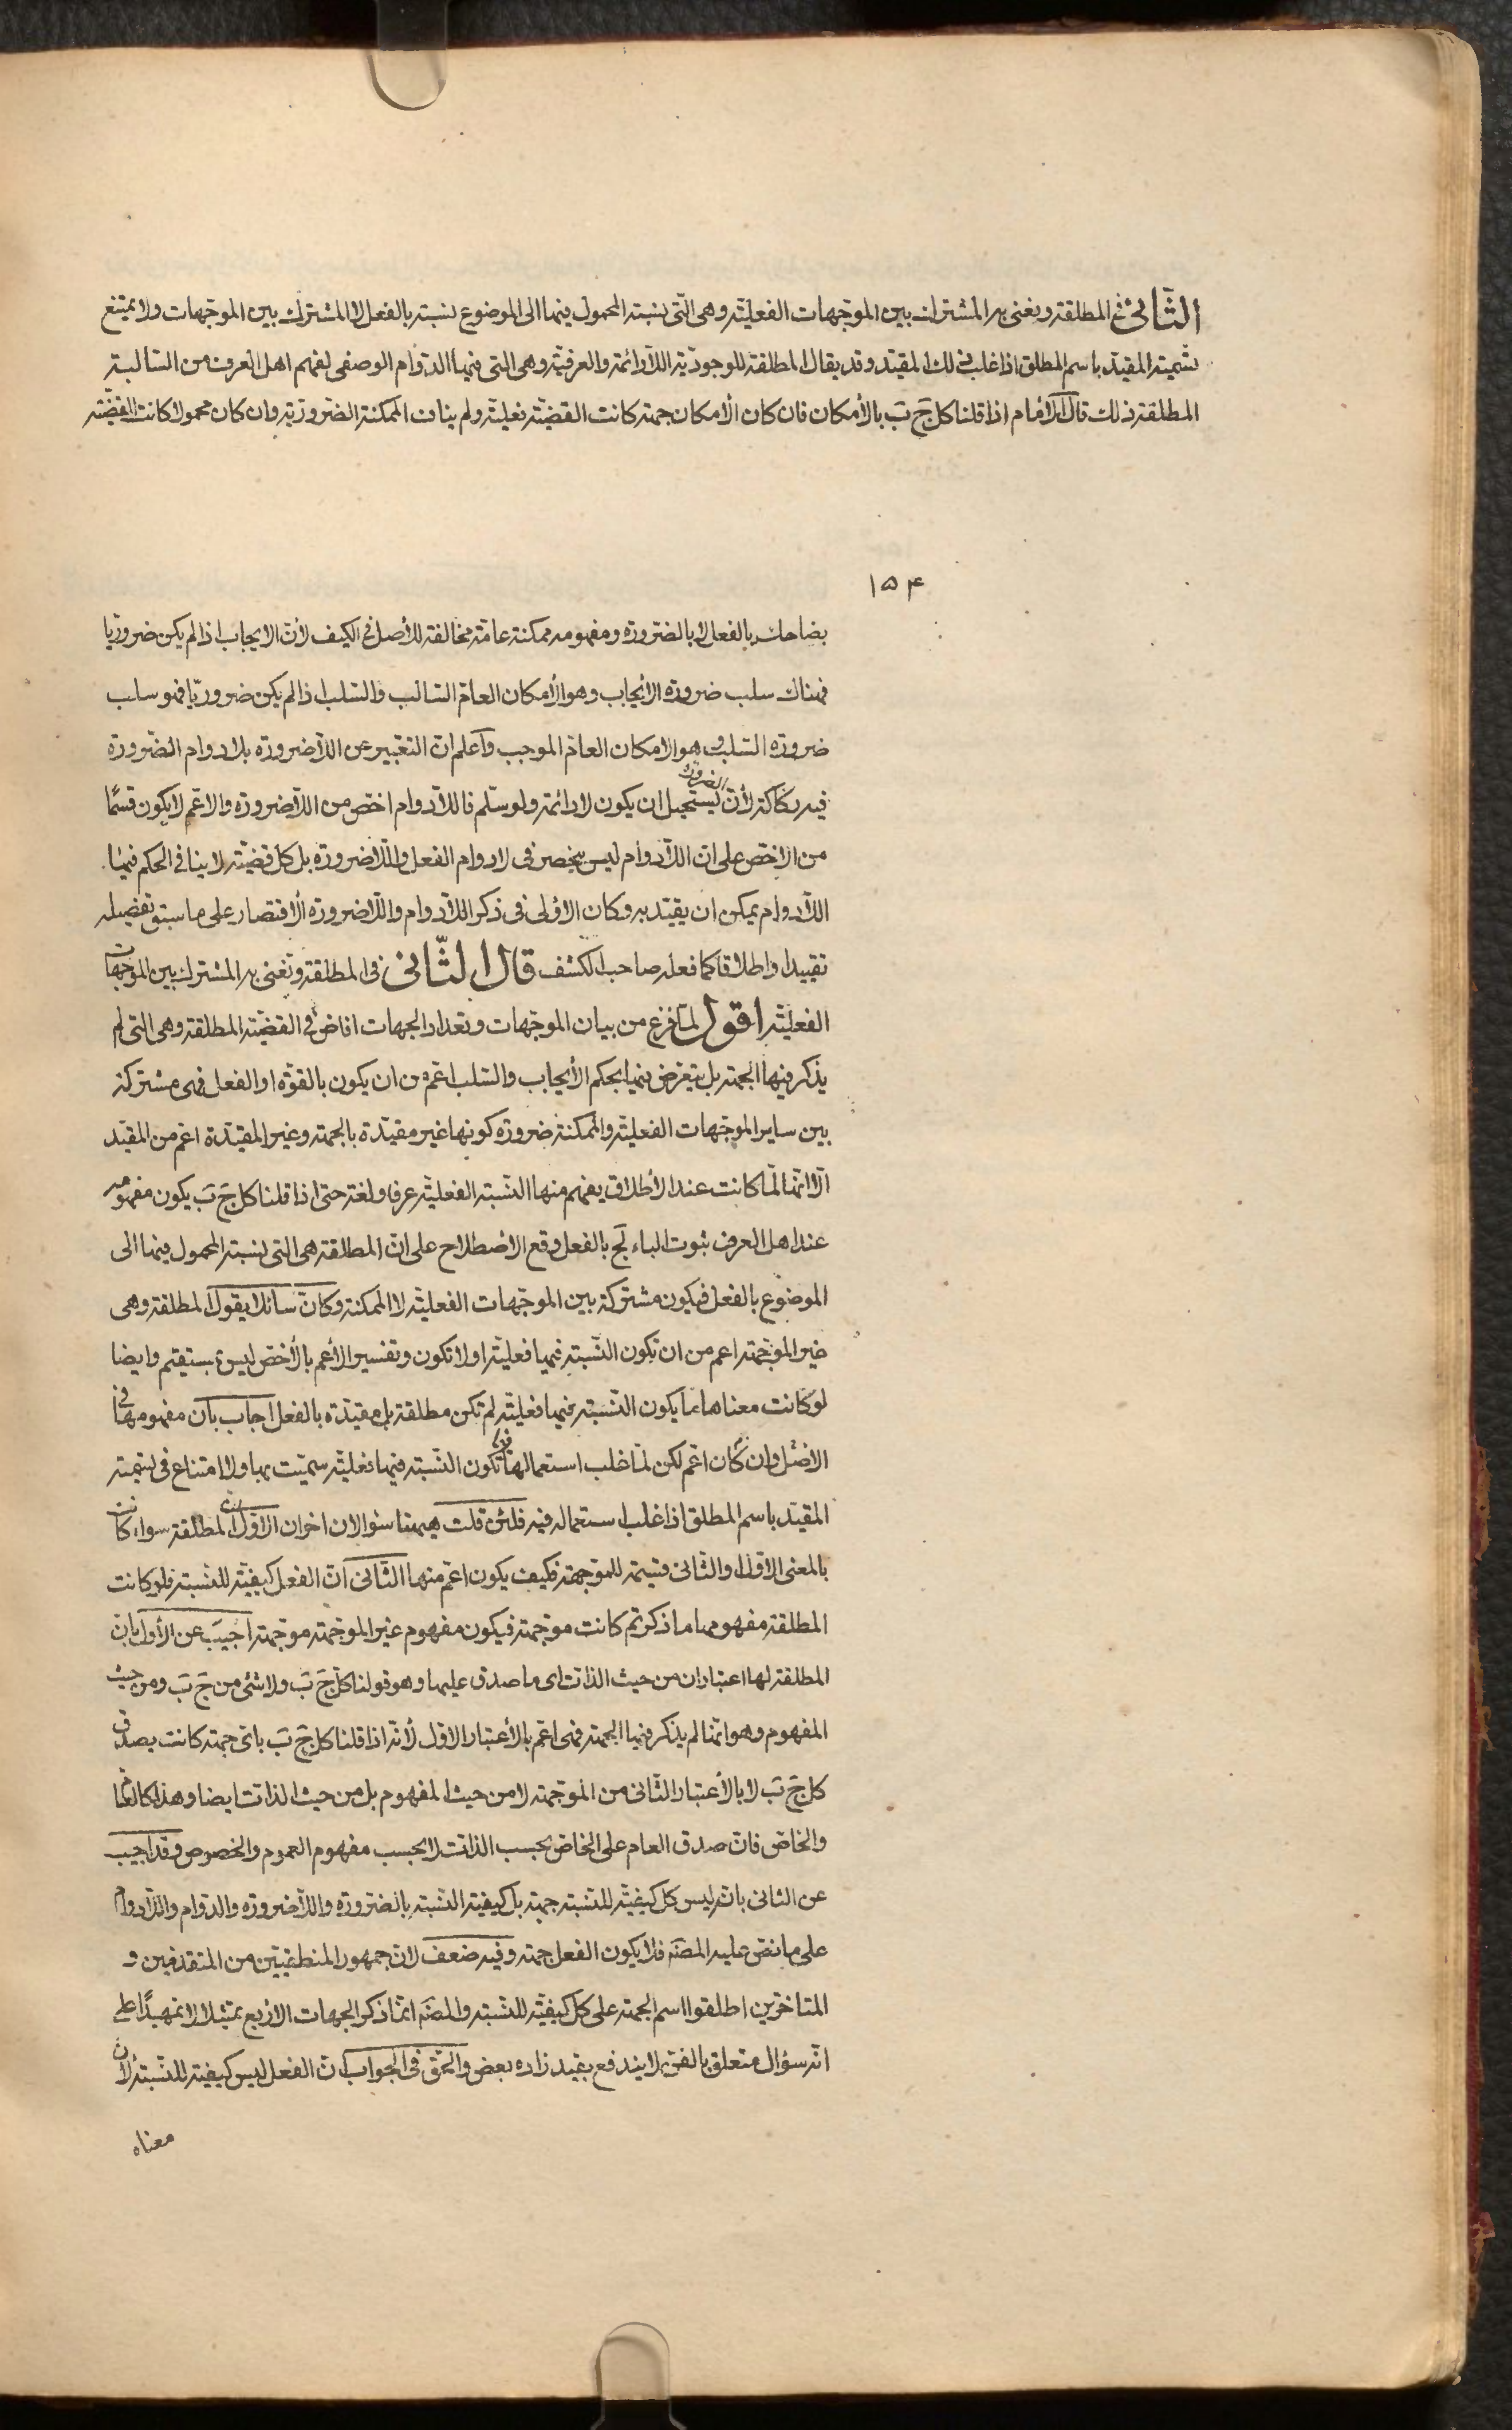 الثانى فى المطلقة ونعنى به المشترك بين الموجهات الفعلية وهى التى نسبة المحمول فيها الى الموضوع نسبة بالفعل لا المشترك بين الموجهات ولا يمتنع
تسمية المقيد باسم المطلق اذا غلب فى ذلك المقيد وقد يقال المطلقة للوجودية اللادائمة والعرفية وهى التى فيها الدوام الوصفى لفهم اهل العرف من السالبة
المطلقة ذلك قال الامام اذا قلنا كل ج ب بالأمكان فان كان الأمكان جهة كانت القضية فعلية ولم يناف الممكنة الضرورية وان كان محمولا كانت القضية
١٥٤
بضاحك بالفعل لا بالضرورة ومفهومه ممكنة عامة مخالفة للأصل فى الكيف لأن الايجاب اذا لم يكن ضروريا
فهناك سلب ضرورة الأيجاب وهو الأمكان العام السالب والسلب اذا لم يكن ضروريا فهو سلب
ضرورة السلب وهو الامكان العام الموجب واعلم ان التعبير عن اللاضرورة بلادوام الضرورة
فيه ركاكة لأن الضرورة يستحيل ان يكون لا دائمة ولو سلم فاللادوام اخص من اللاضرورة والاعم لا يكون قسمًا
من الاخص على ان اللادوام ليس ينحصر فى لادوام الفعل واللاضرورة بل كل قضية لا ينافى الحكم فيها
اللادوام يمكن ان يقيد به وكان الاولى فى ذكر اللادوام واللاضرورة الاقتصار على ما سبق تفصيله
تقييدا واطلاقا كما فعله صاحب الكشف قال الثانى فى المطلقة ونعنى به المشترك بين الموجهات
الفعلية اقول لما فرغ من بيان الموجهات وتعداد الجهات افاض فى القضية المطلقة وهى التى لم
يذكر فيها الجهة بل يتعرض فيها بحكم الأيجاب والسلب اعم من ان يكون بالقوة او الفعل فهى مشتركة
بين ساير الموجهات الفعلية والممكنة ضرورة كونها غير مقيدة بالجهة وغير المقيدة اعم من المقيد
الا انها لما كانت عند الأطلاق يفهم منها النسبة الفعلية عرفا ولغة حتى اذا قلنا كل ج ب يكون مفهومه
عند اهل العرف ثبوت الباء لج بالفعل وقع الاصطلاح على ان المطلقة هى التى نسبة المحمول فيها الى
الموضوع بالفعل فيكون مشتركة بين الموجهات الفعلية لا الممكنة وكان سائلا يقول المطلقة وهى
غير الموجهة اعم من ان تكون النسبة فيها فعلية او لا تكون وتفسير الأعم بالأخص ليس بمستقيم وايضا
لو كانت معناها ما يكون النسبة فيها فعلية لم تكن مطلقة بل مقيدة بالفعل اجاب بان مفهومها فى
الاصل وان كان اعم لكن لما غلب استعمالها فيما تكون النسبة فيها فعلية سميت بها ولا امتناع فى تسمية
المقيد باسم المطلق اذا غلب استعماله فيه فلئن قلت ههنا سؤالان اخران الاول ان المطلقة سواء كانت
بالمعنى الاول او الثانى قسيمة للموجهة فكيف يكون اعم منها الثانى ان الفعل كيفية للنسبة فلو كانت
المطلقة مفهومها ما ذكرتم كانت موجهة فيكون مفهوم غير الموجهة موجهة اجيب عن الأول بان
المطلقة لها اعتباران من حيث الذات اى ما صدق عليها وهو قولنا كل ج ب ولا شئ من ج ب ومن حيث
المفهوم وهو انها لم يذكر فيها الجهة فهى اعم بالأعتبار الاول لأنه اذا قلنا كل ج ب باى جهة كانت يصدق
كل ج ب لا بالأعتبار الثانى من الموجهة لا من حيث المفهوم بل من حيث الذات ايضا وهذا كالعام
والخاص فان صدق العام على الخاص بحسب الذات لا بحسب مفهوم العموم والخصوص وقد اجيب
عن الثانى بانه ليس كل كيفية للنسبة جهة بل كيفية النسبة بالضرورة واللاضرورة والدوام واللادوام
على ما نص عليه المصنف فلا يكون الفعل جهة وفيه ضعف لان جمهور المنطقيين من المتقدمين و
المتاخرين اطلقوا اسم الجهة على كل كيفية للنسبة والمصنف انما ذكر الجهات الاربع تمثيلا لا تمهيدًا على
انه سؤال متعلق بالفن لا يندفع بقيد زاده بعض والحق فى الجواب ان الفعل ليس كيفية للنسبة لأن
معناه